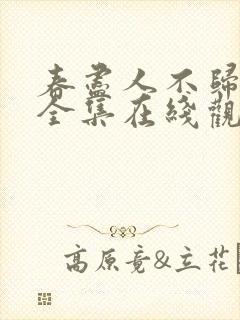 春盡人不歸
全集在綫觀
高原竟&立花